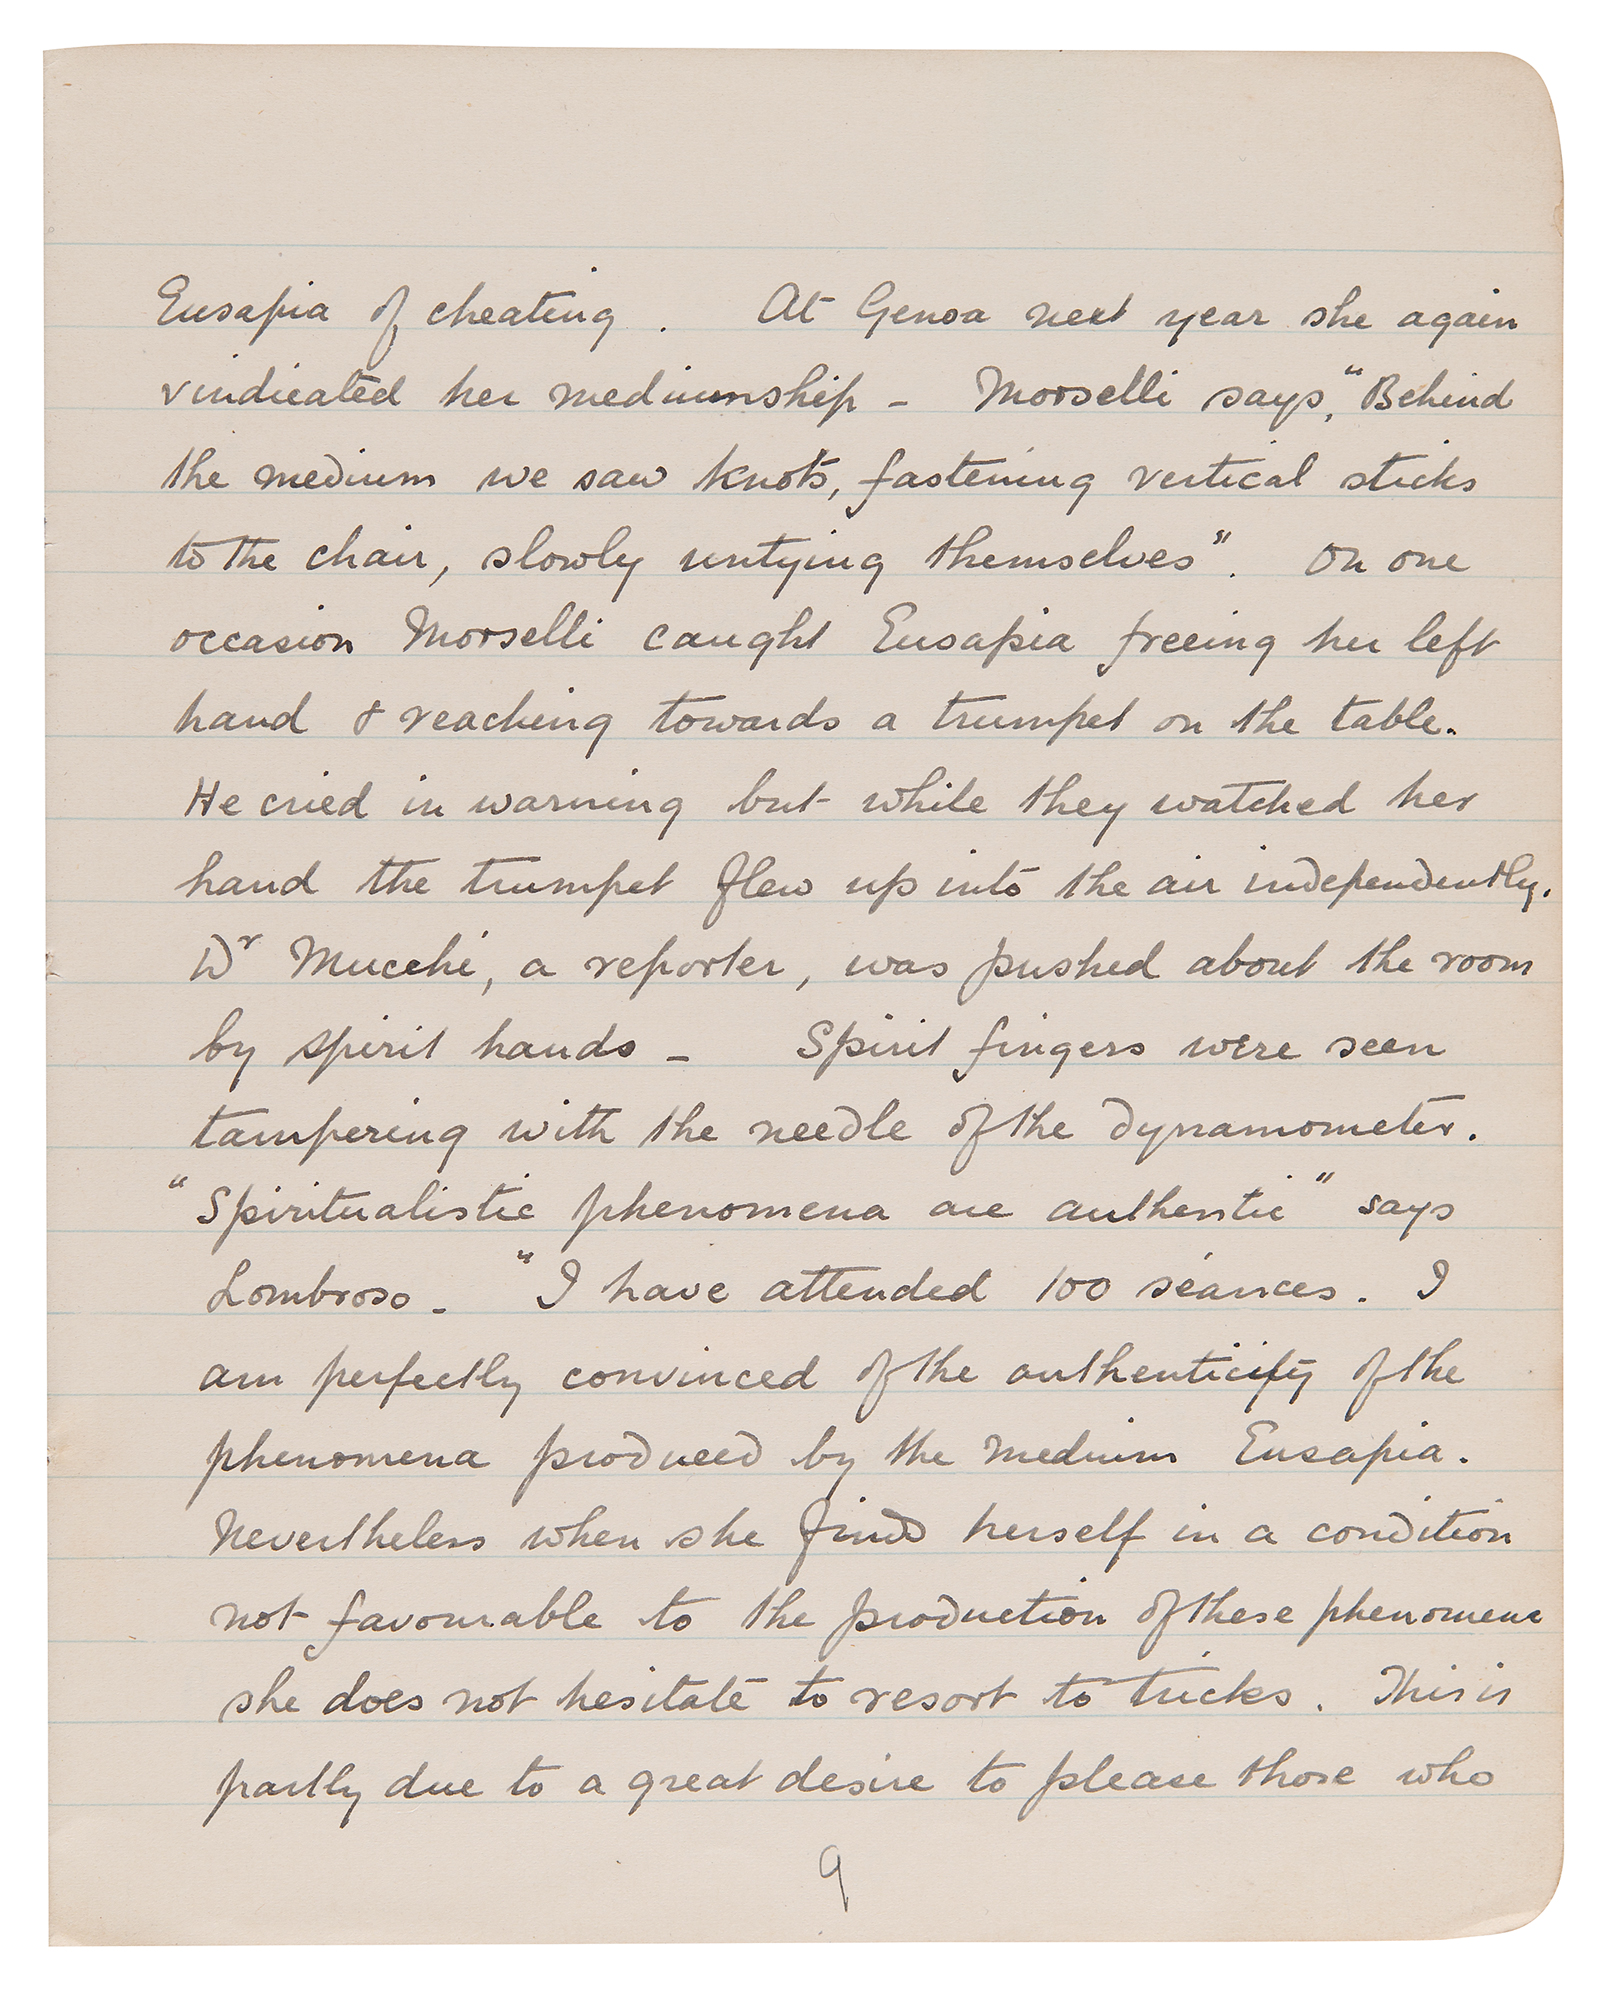 Eusapia of cheating. At Genoa next year she again
vindicated her mediumship - Morselli says, "Behind
the medium we saw knots, fastening vertical sticks
to the chair, slowly untying themselves". On one
occasion Morselli caught Eusapia freeing her left
hand & reaching towards a trumpet on the table.
He cried in warning but while they watched her
hand the trumpet flew up into the air independently.
Dr Mucchi, a reporter, was pushed about the room
by spirit hands - Spirit fingers were seen
tampering with the needle of the dynamometer.
"Spiritualistic phenomena are authentic" says
Lombroso - "I have attended 100 séances. I
am perfectly convinced of the authenticity of the
phenomena produced by the medium Eusapia.
Nevertheless when she finds herself in a condition
not favourable to the production of these phenomena
she does not hesitate to resort to tricks. This is
partly due to a great desire to please those who
9